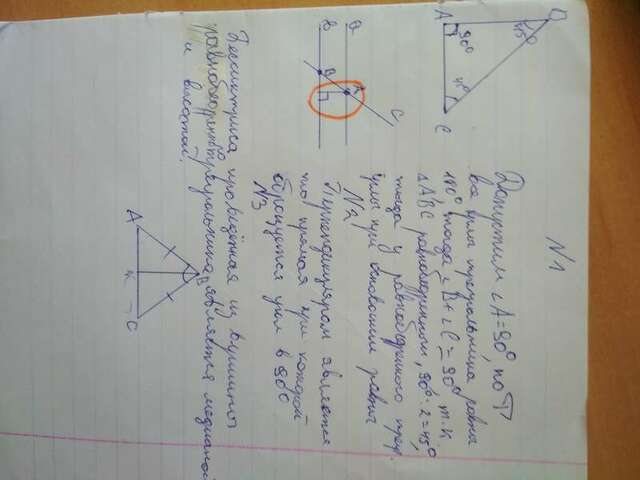 N1
Допустим ∠A=90°, по Т
все углы треугольника равны
180° тогда ∠B+∠C=90° т.к
△ABC равнобедренный, 90°:2=45°
тогда у равнобедренного треу.
углы при основании равны
N2
Перпендикуляром является
то прямая при которой
образуется угол в 90°
N3
Биссектриса проведённая из вершины
равнобедренного треугольника является медианой
и высотой.
A
90°
45°
C
B
a
B
A
C
A
B
C